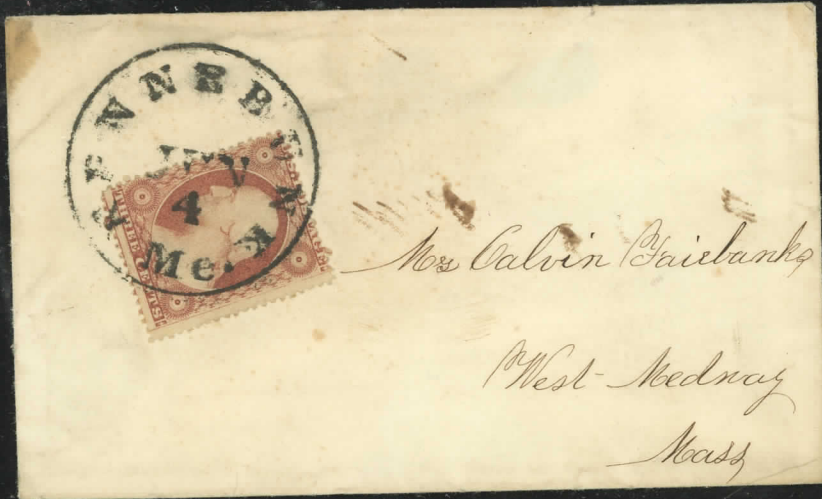 KENNEBUNK
4
Me.
THREE CENTS
Mrs Calvin Fairbanks
West Medway
Mass